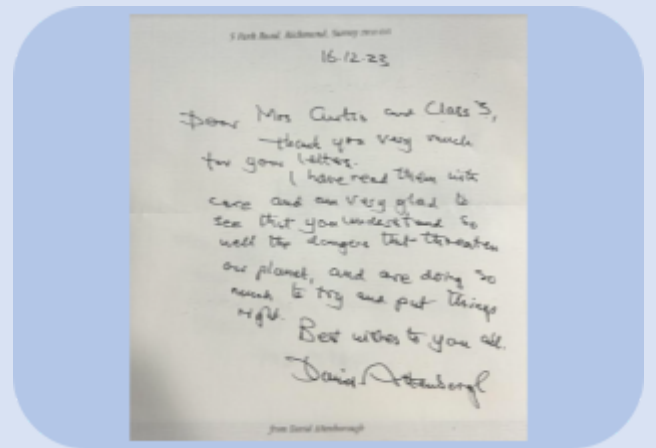 5 Park Road, Richmond, Surrey
16.12.23
Dear Mrs Curtis and Class 3,
thank you very much
for your letters.
I have read them with
care and am very glad to
see that you understand so
well the dangers that threaten
our planet, and are doing so
much to try and put things
right.
Best wishes to you all.
David Attenborough
from David Attenborough